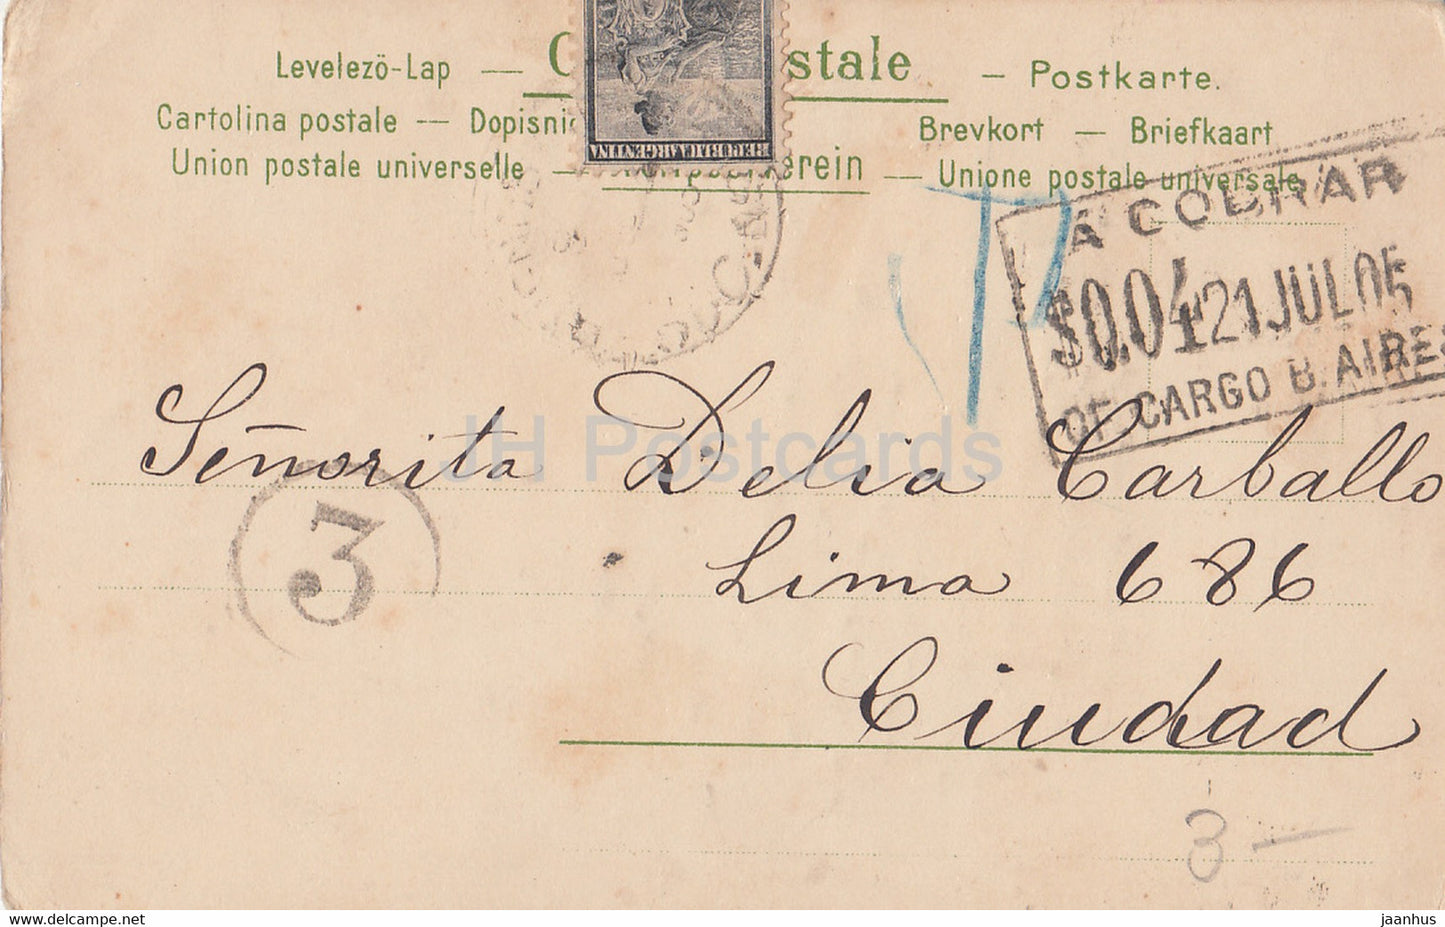 Levelezö-Lap — C stale — Postkarte.
Cartolina postale — Dopisnic Brevkort — Briefkaart
Union postale universelle — erein — Unione postale universale
REPUBLICA ARGENTINA
A COBRAR
$0.04 21 JUL 05
OF. CARGO B. AIRES
Señorita Delia Carballo
3
Lima 686
Ciudad
3 —
JH Postcards
jaanhus